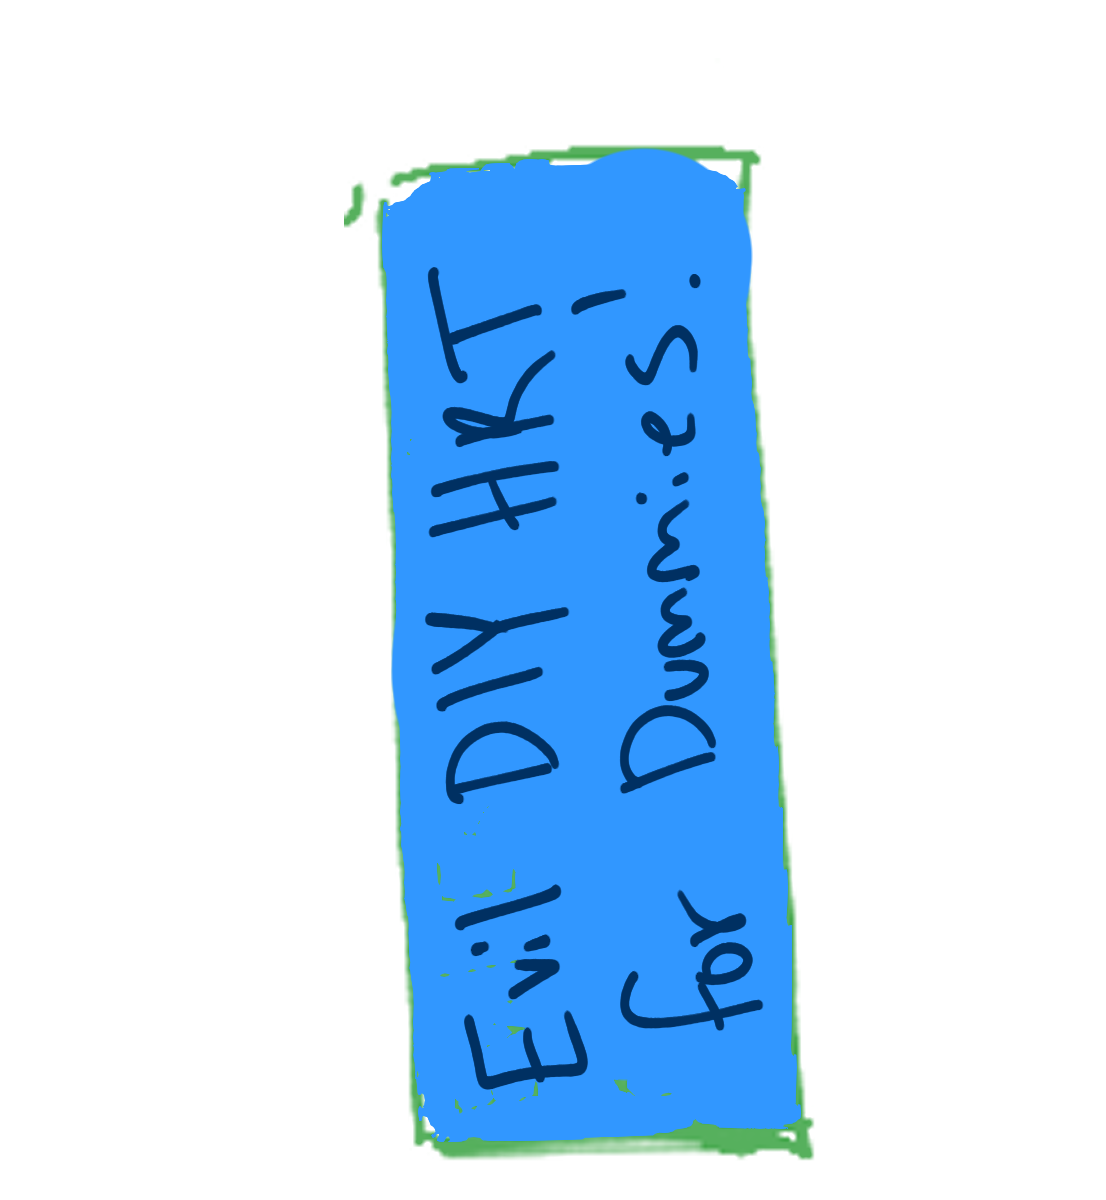 Evil DIY HRT
for Dummies!